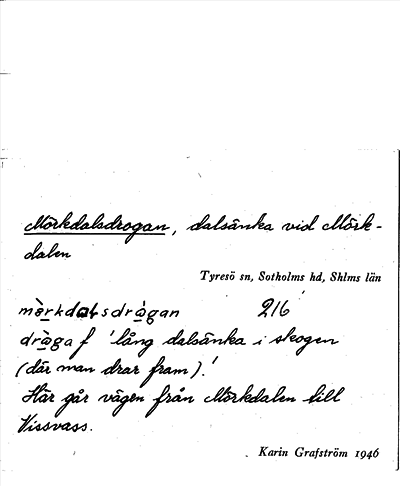 Mörkdalsdrogan, dalsänka vid Mörk-
dalen
Tyresö sn, Sotholms hd, Shlms län
mèrkdalsdrågan 216
dråga f 'lång dalsänka i skogen
(där man drar fram).'
Här går vägen från Mörkdalen till
Vissvass.
Karin Grafström 1946